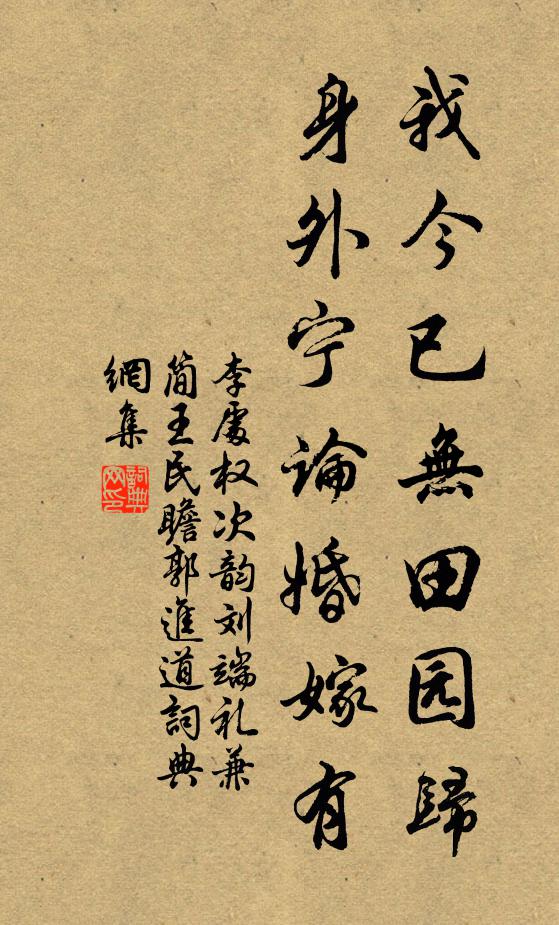 我今已無田园歸
身外宁論婚嫁有
李處权次韵刘端礼兼
简王民瞻郭進道詞典
網集
詞典
网印